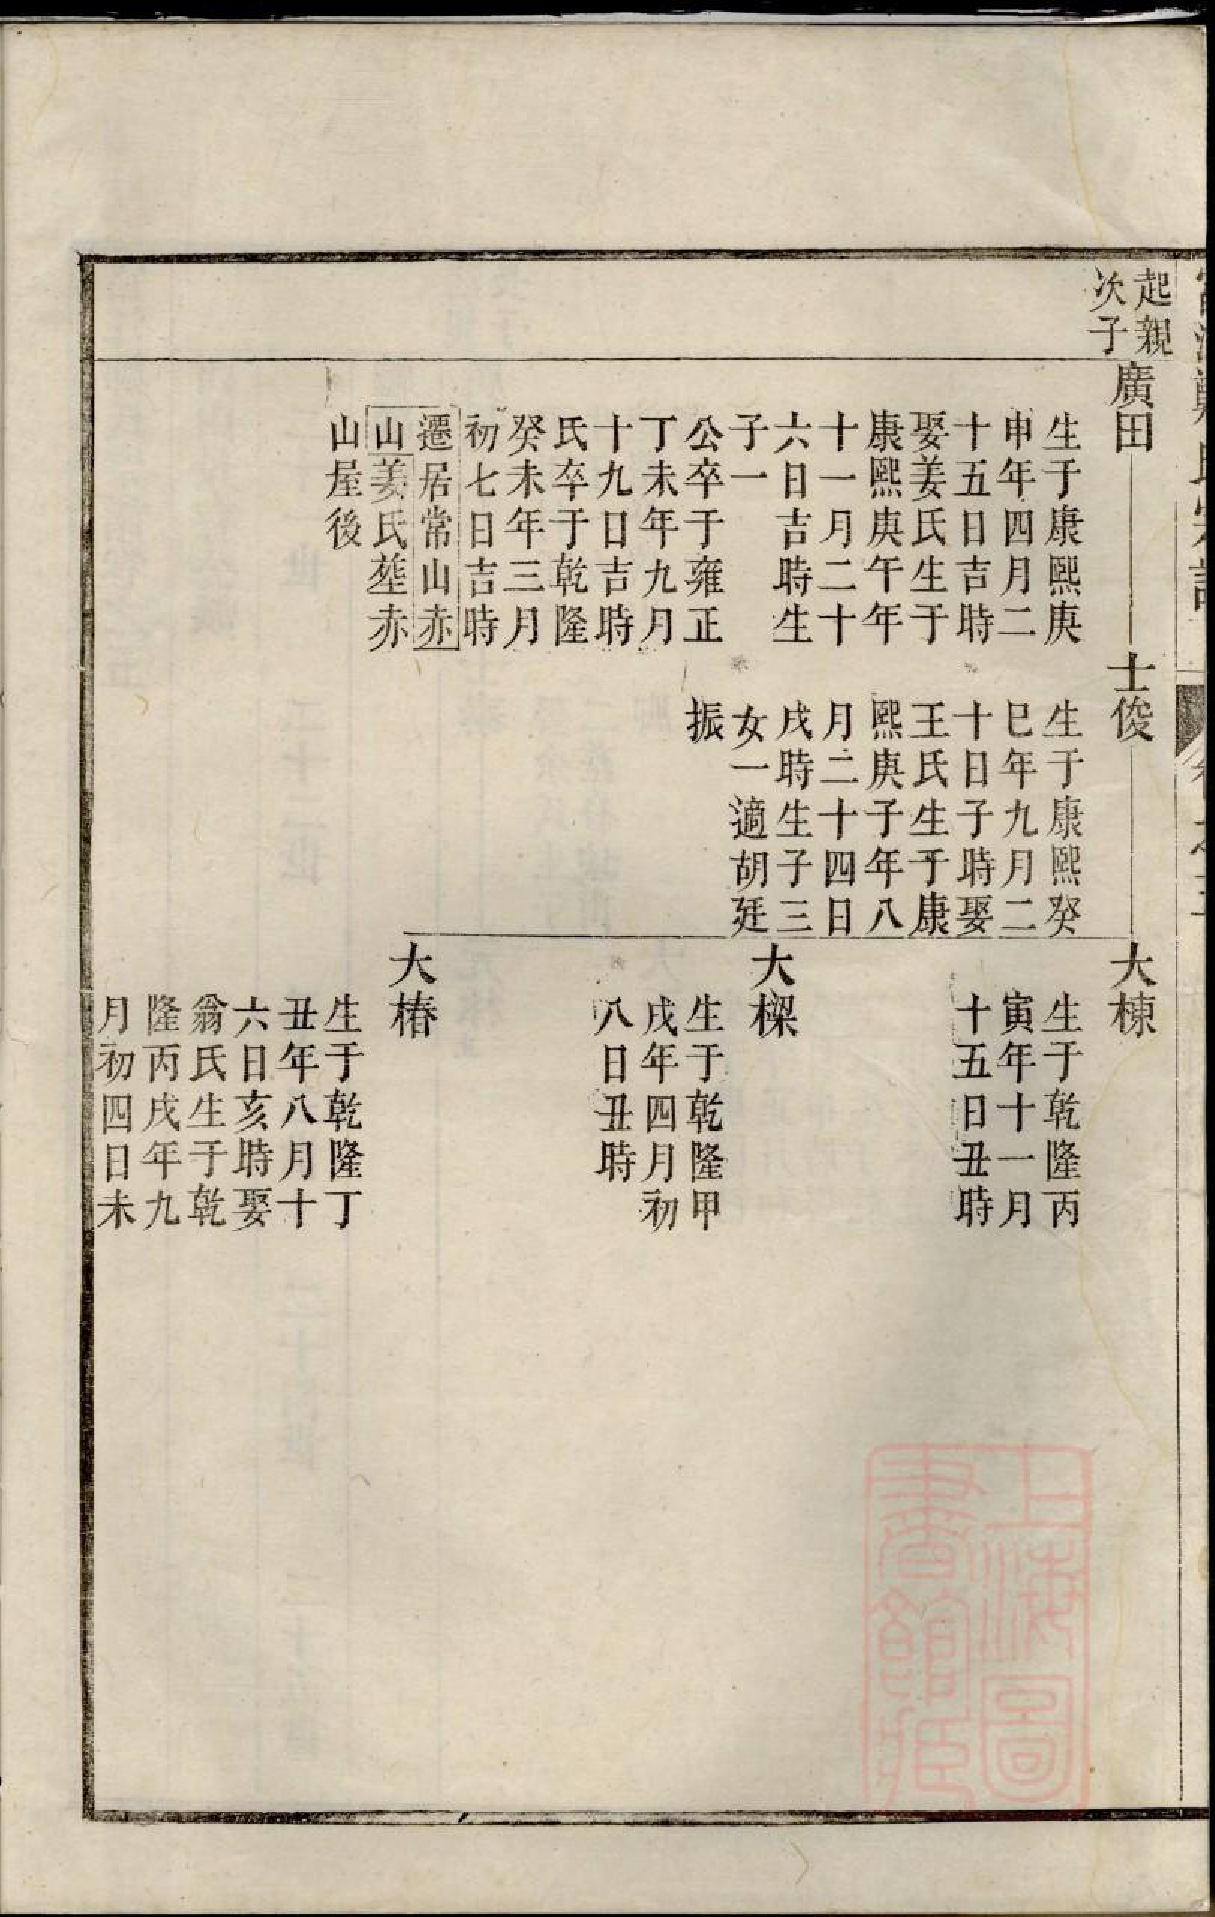 起親
次子
廣田
生于康熙庚
申年四月二
十五日吉時
娶姜氏生于
康熙庚午年
十一月二十
六日吉時生
子一
公卒于雍正
丁未年九月
十九日吉時
氏卒于乾隆
癸未年三月
初七日吉時
遷居常山赤
山姜氏塟赤
山屋後
士俊
生于康熙癸
巳年九月二
十日子時娶
王氏生于康
熙庚子年八
月二十四日
戌時生子三
女一適胡廷
振
大棟
生于乾隆丙
寅年十一月
十五日丑時
大樑
生于乾隆甲
戌年四月初
八日丑時
大椿
生于乾隆丁
丑年八月十
六日亥時娶
翁氏生于乾
隆丙戌年九
月初四日未
上海圖
書館藏